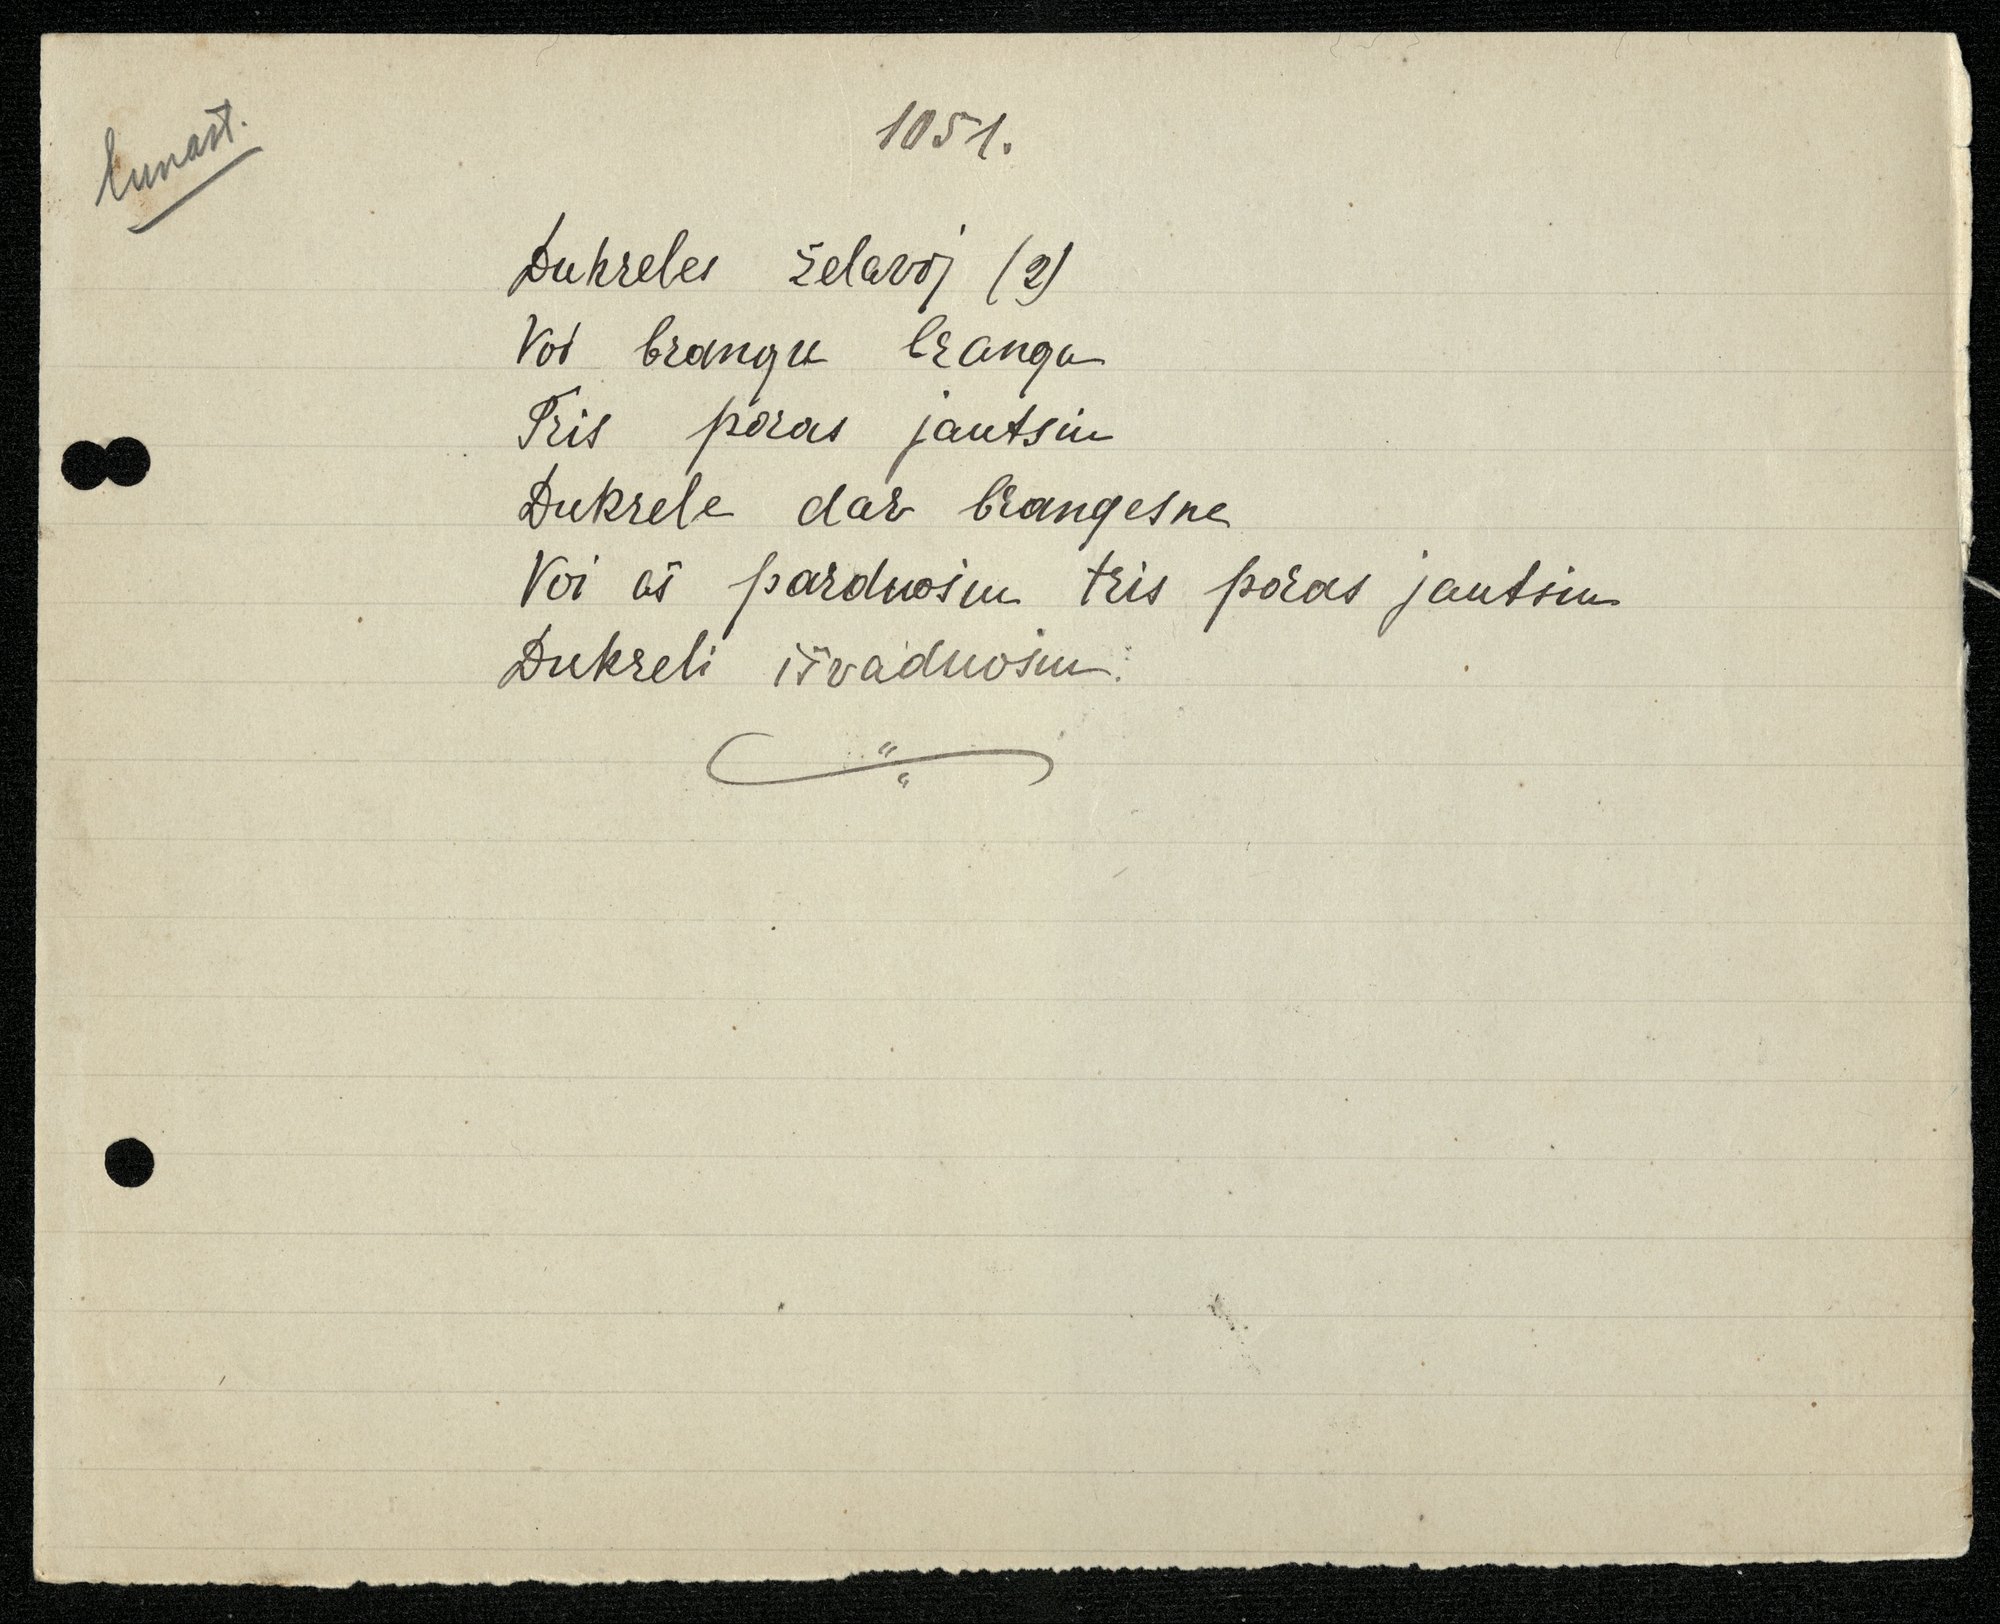 lunast.
1051.
Dukreles želavoj (2)
Voi brangu brangu
Tris poras jautsiu
Dukrele dar brangesne
Voi aš parduosiu tris poras jautsiu
Dukreli išvaduosiu.